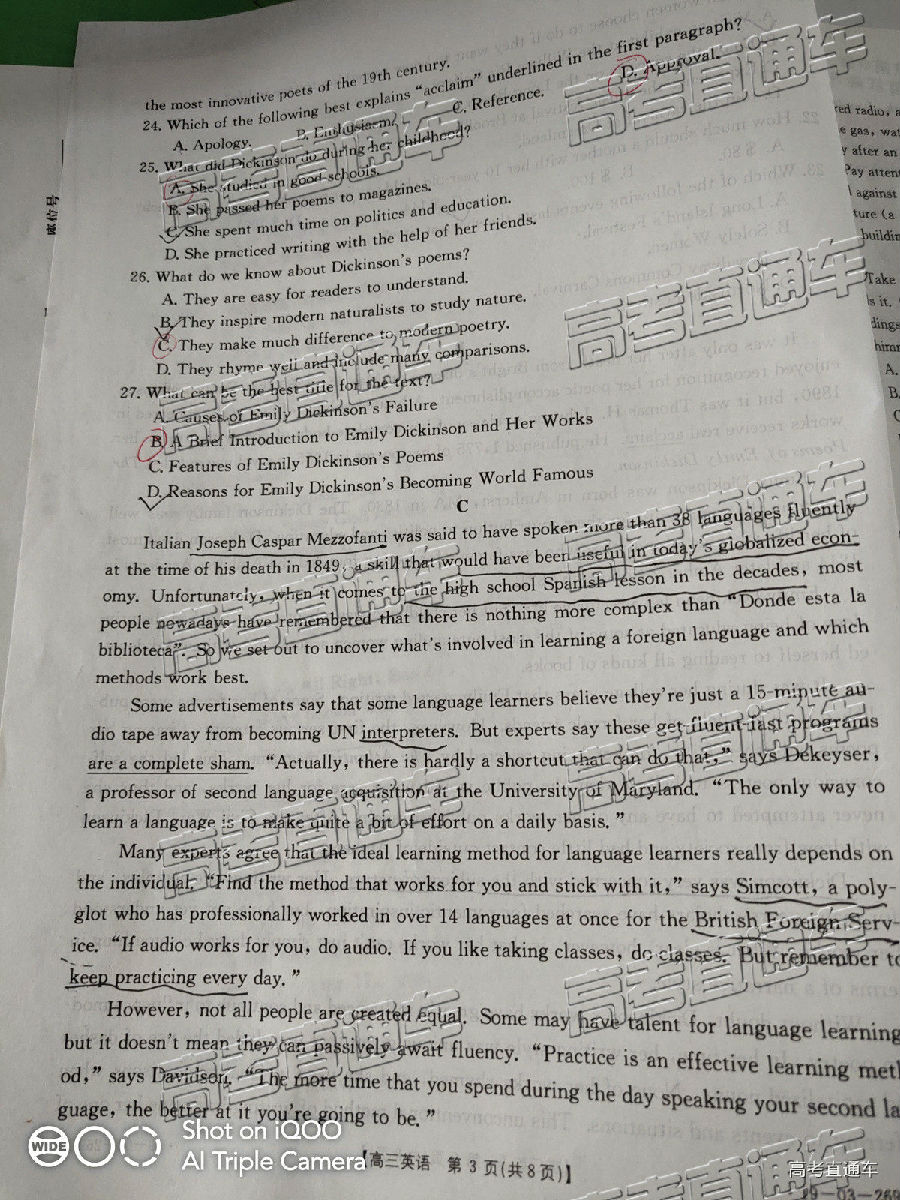 the most innovative poets of the 19th century.
24. Which of the following best explains “acclaim” underlined in the first paragraph?
A. Apology. B. Enthusiasm. C. Reference. D. Approval.
25. What did Dickinson do during her childhood?
A. She studied in good schools.
B. She passed her poems to magazines.
C. She spent much time on politics and education.
D. She practiced writing with the help of her friends.
26. What do we know about Dickinson’s poems?
A. They are easy for readers to understand.
B. They inspire modern naturalists to study nature.
C. They make much difference to modern poetry.
D. They rhyme well and include many comparisons.
27. What can be the best title for the text?
A. Causes of Emily Dickinson’s Failure
B. A Brief Introduction to Emily Dickinson and Her Works
C. Features of Emily Dickinson’s Poems
D. Reasons for Emily Dickinson’s Becoming World Famous
C
Italian Joseph Caspar Mezzofanti was said to have spoken more than 38 languages fluently
at the time of his death in 1849, a skill that would have been useful in today’s globalized econ-
omy. Unfortunately, when it comes to the high school Spanish lesson in the decades, most
people nowadays have remembered that there is nothing more complex than “Donde esta la
biblioteca”. So we set out to uncover what’s involved in learning a foreign language and which
methods work best.
Some advertisements say that some language learners believe they’re just a 15-minute au-
dio tape away from becoming UN interpreters. But experts say these get-fluent-fast programs
are a complete sham. “Actually, there is hardly a shortcut that can do that,” says Dekeyser,
a professor of second language acquisition at the University of Maryland. “The only way to
learn a language is to make quite a bit of effort on a daily basis.”
Many experts agree that the ideal learning method for language learners really depends on
the individual. “Find the method that works for you and stick with it,” says Simcott, a poly-
glot who has professionally worked in over 14 languages at once for the British Foreign Serv-
ice. “If audio works for you, do audio. If you like taking classes, do classes. But remember to
keep practicing every day.”
However, not all people are created equal. Some may have talent for language learning
but it doesn’t mean they can passively await fluency. “Practice is an effective learning meth
od,” says Davidson. “The more time that you spend during the day speaking your second la
guage, the better at it you’re going to be.”
【高三英语 第 3 页(共 8 页)】
座位号
ed radio, a
e gas, wat
y after an
Pay atten
against
ture (a
buildin
Take
is it.
dings
A.
B.
C
高考直通车
高考直通车
高考直通车
高考直通车
高考直通车
高考直通车
高考直通车
高考直通车
高考直通车
高考直通车
WIDE
Shot on iQOO
AI Triple Camera
高考直通车